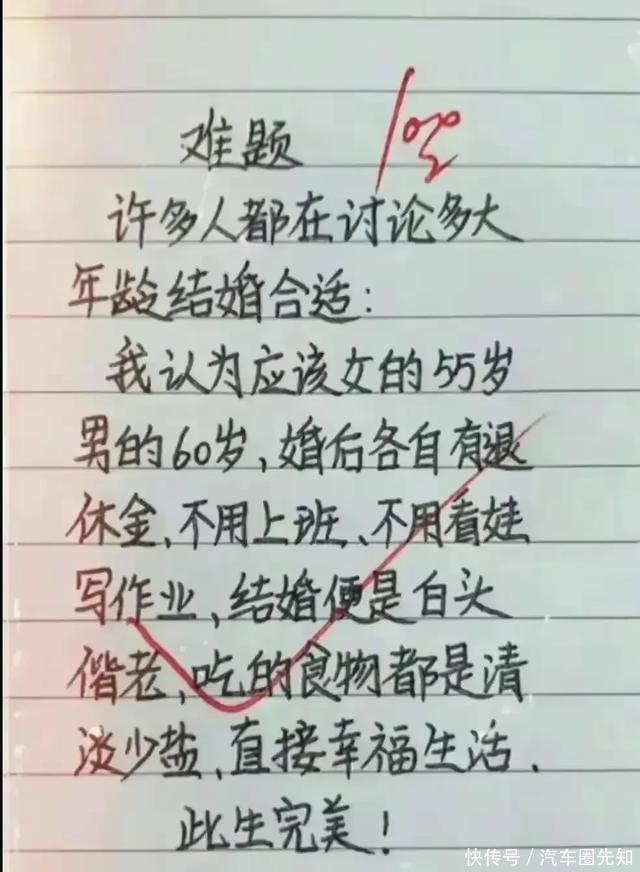 难题 100
许多人都在讨论多大
年龄结婚合适:
我认为应该女的55岁
男的60岁,婚后各自有退
休金、不用上班、不用看娃
写作业,结婚便是白头
偕老,吃的食物都是清
淡少盐,直接幸福生活.
此生完美!
快传号/汽车圈先知